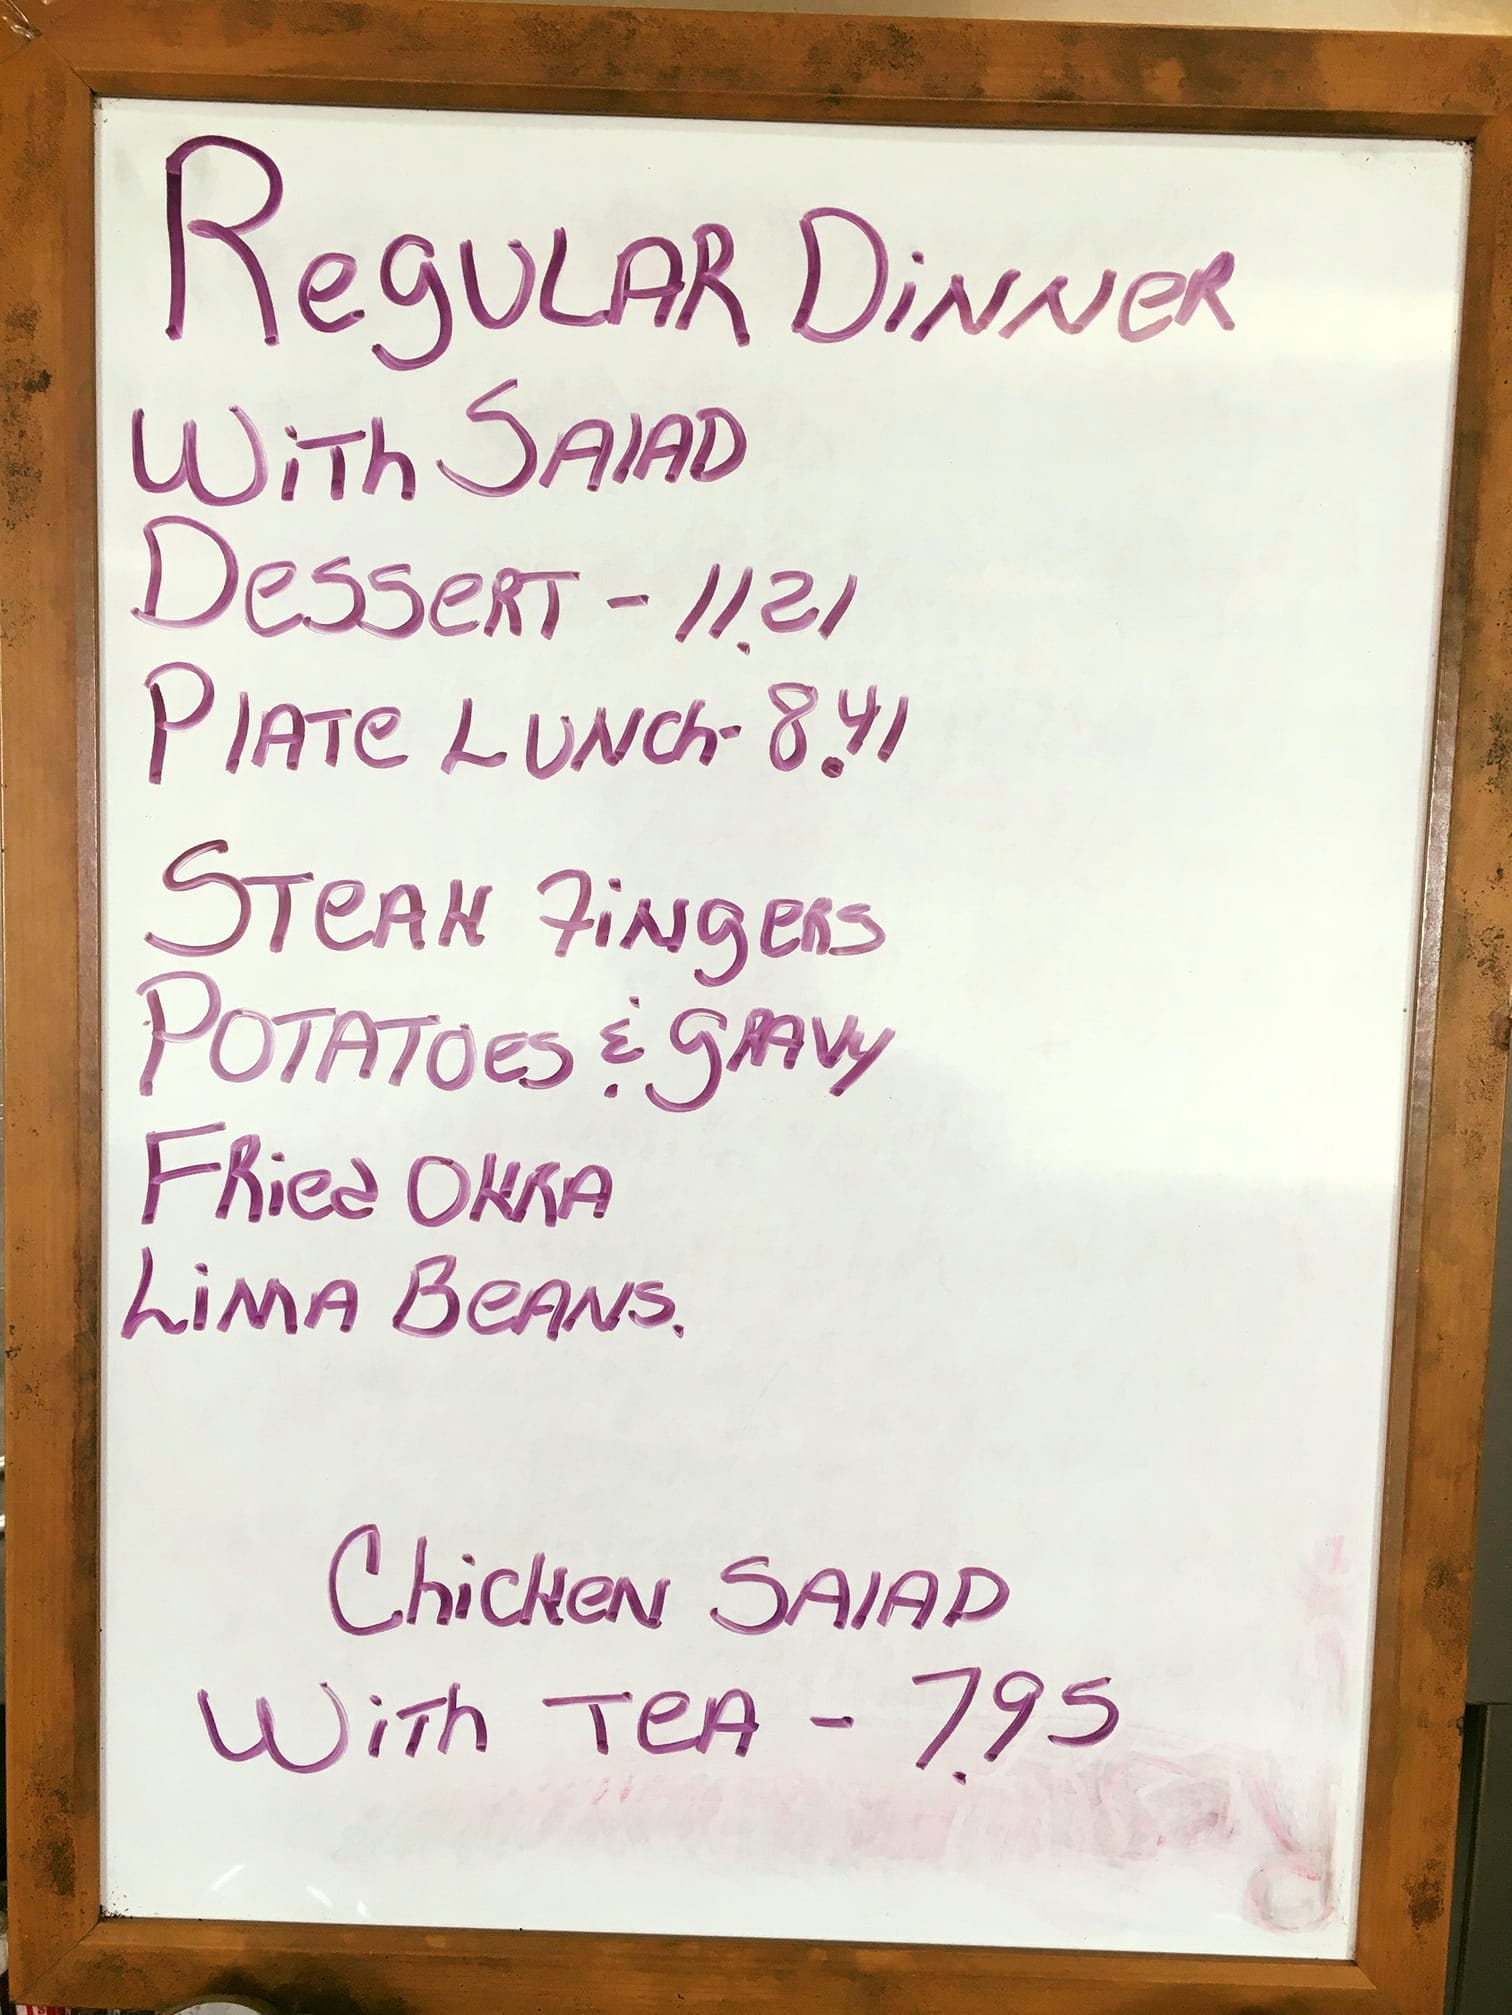 Regular Dinner
With Salad
Dessert - 11.21
Plate Lunch - 8.41
Steak Fingers
Potatoes & Gravy
Fried Okra
Lima Beans.
Chicken Salad
With Tea - 7.95